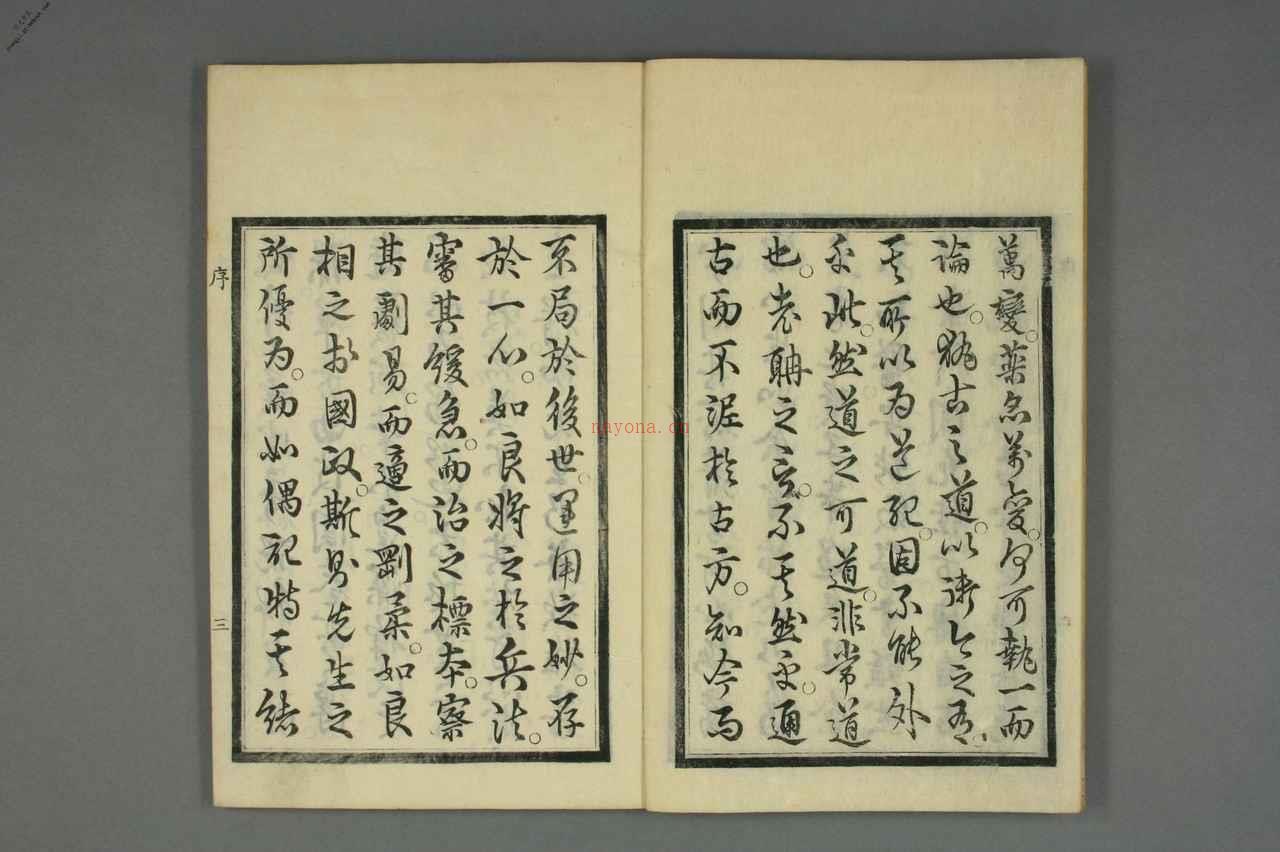 萬變。藥亦萬變。何可執一而
論也。執古之道。以御今之有。
其所以為道紀。固不能外
乎此。然道之可道。非常道
也。老聃之言。不其然乎。通
古而不泥於古方。知今而
不局於後世。運用之妙。存
於一心。如良將之於兵法。
審其緩急。而治之標本。察
其劇易。而適之剛柔。如良
相之於國政。斯則先生之
所優為。而如偶記特其緒
序
三
nayona.cn